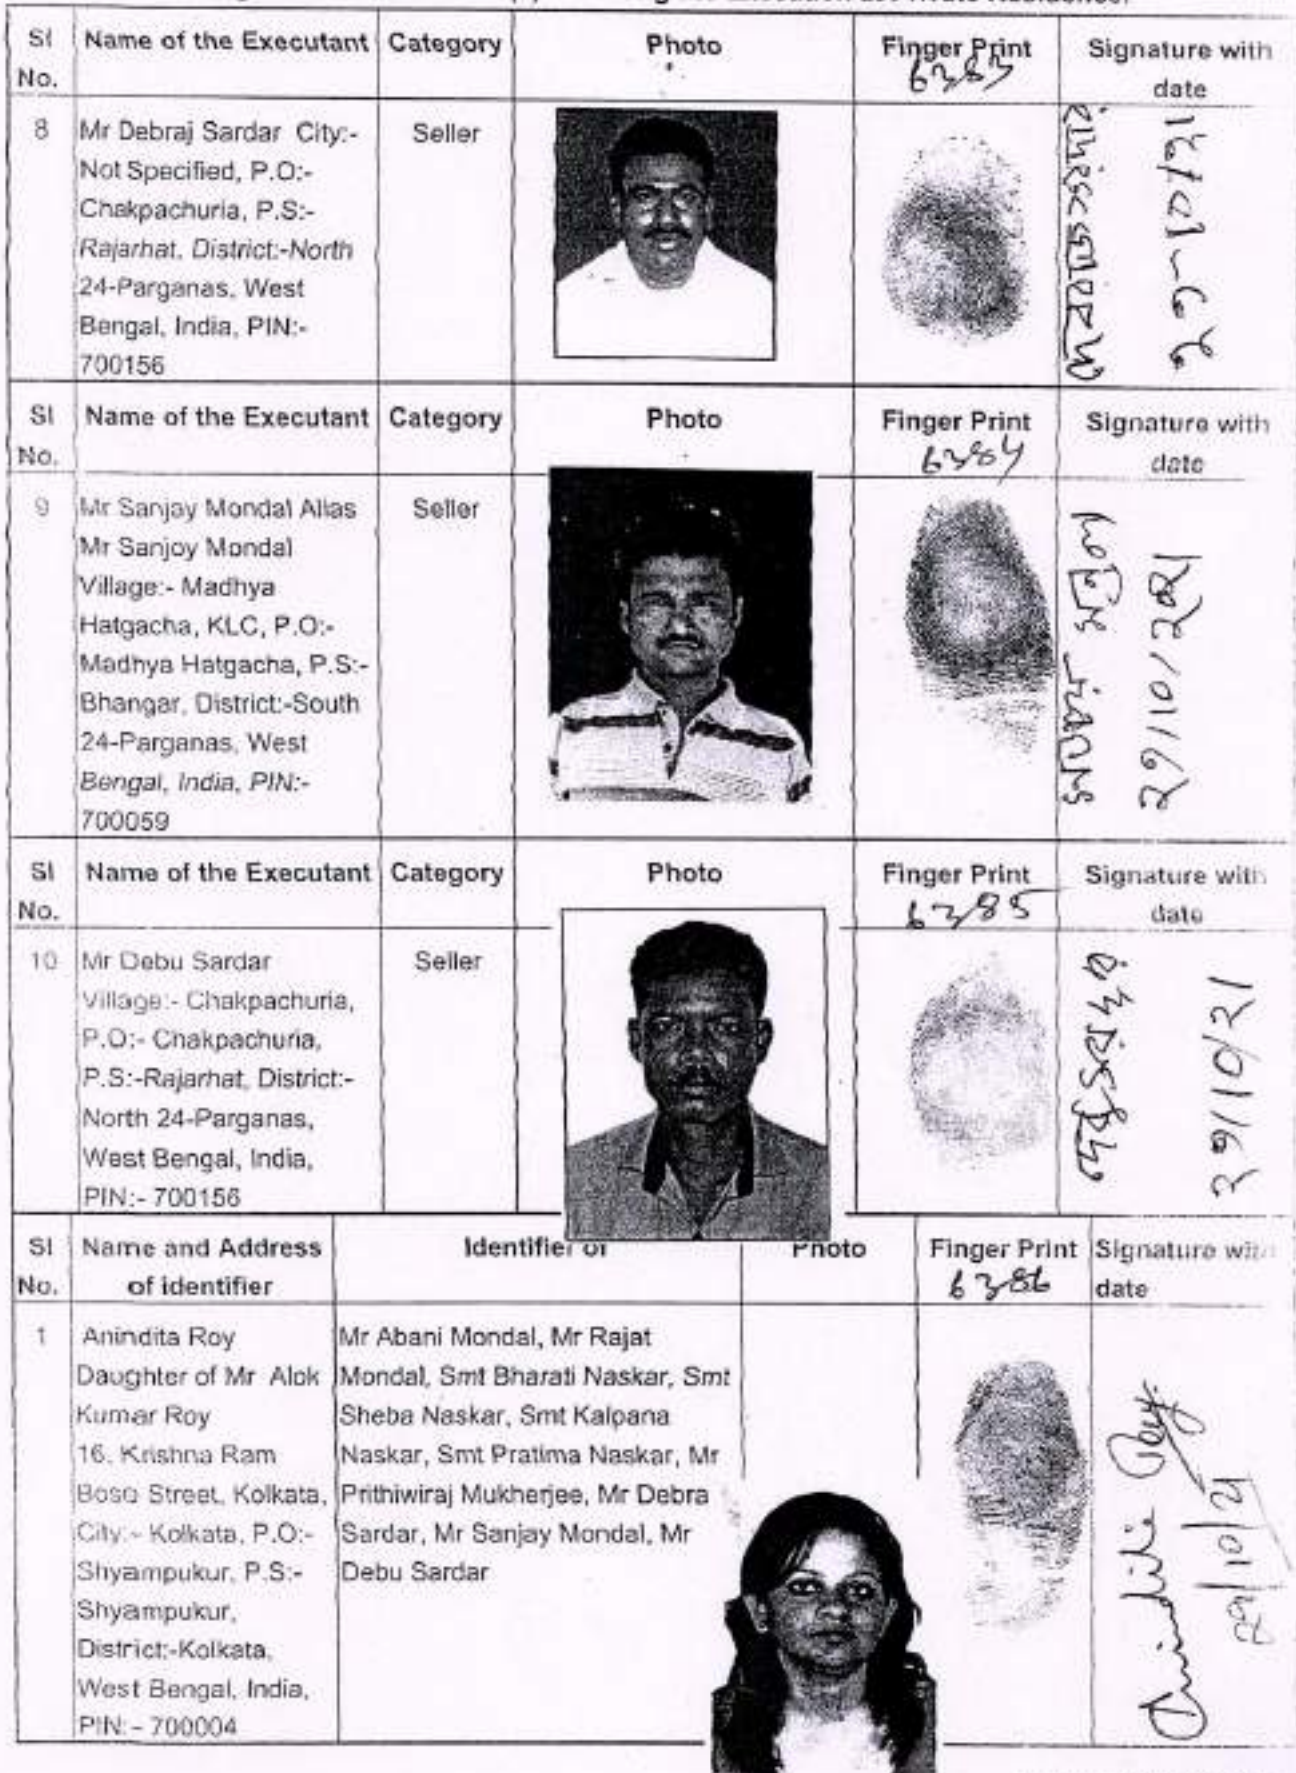 Sl No.
Name of the Executant
Category
Photo
Finger Print
6383
Signature with date
8
Mr Debraj Sardar City:-
Not Specified, P.O:-
Chakpachuria, P.S:-
Rajarhat, District:-North
24-Parganas, West
Bengal, India, PIN:-
700156
Seller
Sl No.
Name of the Executant
Category
Photo
Finger Print
6384
Signature with date
9
Mr Sanjay Mondal Alias
Mr Sanjoy Mondal
Village:- Madhya
Hatgacha, KLC, P.O:-
Madhya Hatgacha, P.S:-
Bhangar, District:-South
24-Parganas, West
Bengal, India, PIN:-
700059
Seller
Sl No.
Name of the Executant
Category
Photo
Finger Print
6385
Signature with date
10
Mr Debu Sardar
Village:- Chakpachuria,
P.O:- Chakpachuria,
P.S:-Rajarhat, District:-
North 24-Parganas,
West Bengal, India,
PIN:- 700156
Seller
Sl No.
Name and Address
of identifier
Identifier of
Photo
Finger Print
6386
Signature with
date
1
Anindita Roy
Daughter of Mr Alok
Kumar Roy
16, Krishna Ram
Bose Street, Kolkata,
City:- Kolkata, P.O:-
Shyampukur, P.S:-
Shyampukur,
District:-Kolkata,
West Bengal, India,
PIN:- 700004
Mr Abani Mondal, Mr Rajat
Mondal, Smt Bharati Naskar, Smt
Sheba Naskar, Smt Kalpana
Naskar, Smt Pratima Naskar, Mr
Prithiwiraj Mukherjee, Mr Debra
Sardar, Mr Sanjay Mondal, Mr
Debu Sardar